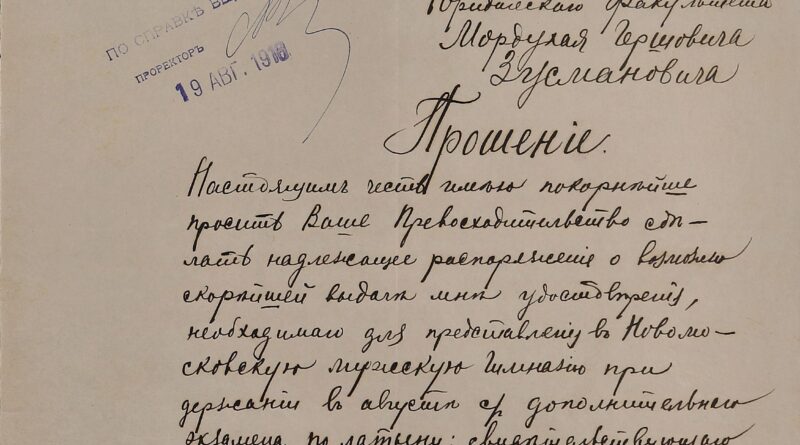 ПО СПРАВКѢ
ПРОРЕКТОРЪ
19 АВГ. 1916
Юридическаго Факультета
Мордухая Гершовича
Зусмановича
Прошеніе.
Настоящимъ честь имѣю покорнѣйше
просить Ваше Превосходительство сдѣ-
лать надлежащее распоряженіе о возможно
скорѣйшей выдачѣ мнѣ удостовѣренія,
необходимаго для представленія въ Новомо-
сковскую мужскую гимназію при
держаніи въ августѣ с/г дополнительнаго
экзамена по латыни: свидѣтельствующаго